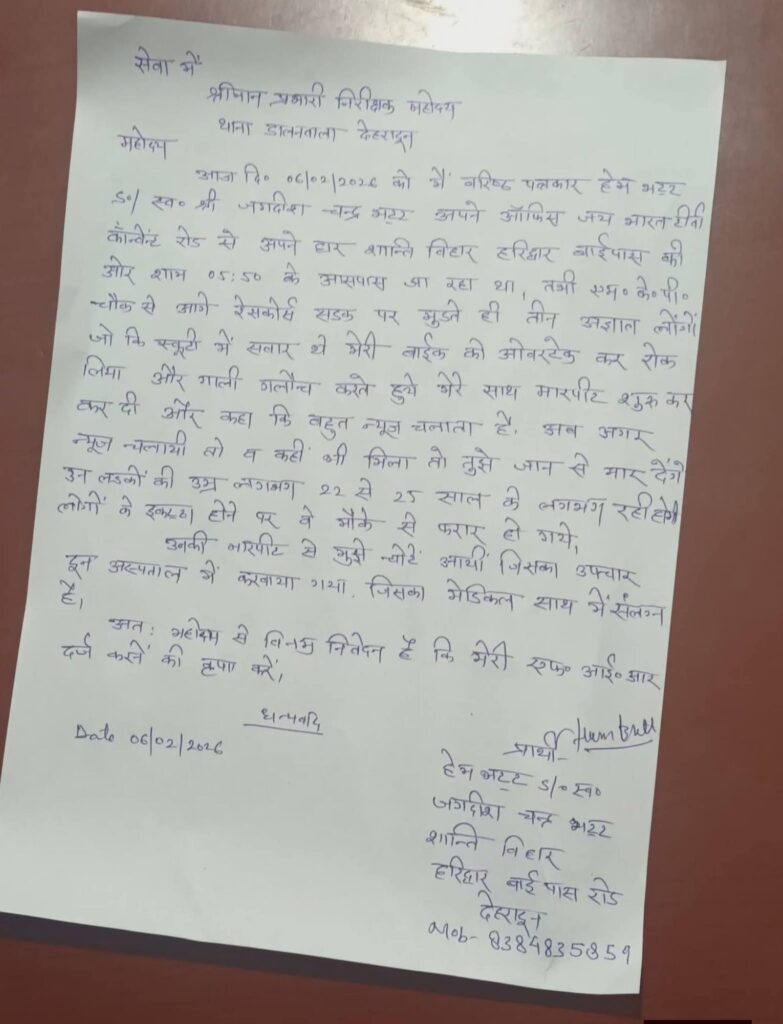 सेवा में
श्रीमान प्रभारी निरीक्षक महोदय
थाना डालनवाला देहरादून
महोदय
आज दि० 06/02/2026 को मैं वरिष्ठ पत्रकार हेम भट्ट
S०/ स्व० श्री जगदीश चन्द्र भट्ट अपने ऑफिस जय भारत टीवी
कॉन्वेंट रोड से अपने घर शान्ति विहार हरिद्वार बाईपास की
ओर शाम 05:50 के आसपास जा रहा था, तभी एम० के० पी०
चौक से आगे रेसकोर्स सडक पर मुडते ही तीन अज्ञात लोगों
जो कि स्कूटी में सवार थे मेरी बाईक को ओवरटेक कर रोक
लिया और गाली गलौच करते हुये मेरे साथ मारपीट शुरू कर
कर दी और कहा कि बहुत न्यूज चलाता है. अब अगर
न्यूज चलायी तो व कहीं भी मिला तो तुझे जान से मार देंगे
उन लडकों की उम्र लगभग 22 से 25 साल के लगभग रही होगी
लोगों के इकठ्ठा होने पर वे मौके से फरार हो गये,
उनकी मारपीट से मुझे चोटें आयीं जिसका उपचार
दून अस्पताल में करवाया गया. जिसका मेडिकल साथ में संलग्न
है।
अत: महोदय से विनम्र निवेदन है कि मेरी एफ० आई० आर
दर्ज करने की कृपा करें।
धन्यवाद
Date 06/02/2026
प्रार्थी- Hem Bhatt
हेम भट्ट S/० स्व०
जगदीश चन्द्र भट्ट
शान्ति विहार
हरिद्वार बाईपास रोड
देहरादून
Mob- 8384835859